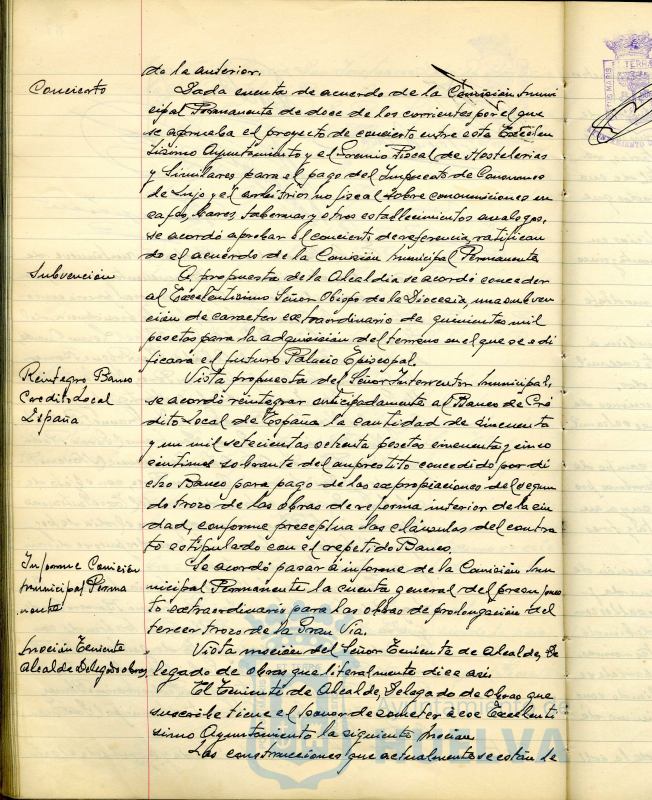 de la anterior.
Concierto
Dada cuenta de acuerdo de la Comisión Muni
cipal Permanente de doce de los corrientes por el que
se aprueba el proyecto de concierto entre este Excelen
tísimo Ayuntamiento y el Gremio Fiscal de Hostelerias
y Similares para el pago del Impuesto de Consumos
de Lujo y el arbitrio no fiscal sobre consumiciones en
cafés, bares, tabernas y otros establecimientos analogos,
se acordó aprobar el concierto de referencia, ratifican
do el acuerdo de la Comisión Municipal Permanente
Subvención
A propuesta de la Alcaldia se acordó conceder
al Excelentisimo Señor Obispo de la Diocesis, una subven
ción de caracter extraordinario de quinientas mil
pesetas para la adquisición del terreno en el que se edi
ficará el futuro Palacio Episcopal.
Reintegro Banco
Credito Local
España
Vista propuesta del Señor Interventor Municipal,
se acordó reintegrar anticipadamente al Banco de Cré
dito Local de España la cantidad de cincuenta
y un mil setecientas ochenta pesetas cincuenta y cinco
centimos sobrante del emprestito concedido por di
cho Banco para pago de las expropiaciones del segun
do trozo de las obras de reforma interior de la ciu
dad, conforme preceptua las cláusulas del contra
to estipulado con el repetido Banco.
Informe Comisión
Municipal Perma
nente
Se acordó pasar á informe de la Comisión Mu
nicipal Permanente la cuenta general del presupues
to extraordinario para las obras de prolongación del
tercer trozo de la Gran Via.
Moción Teniente
Alcalde Delegado obras,
Vista moción del Señor Teniente de Alcalde, De
legado de obras que literalmente dice asi:
El Teniente de Alcalde, Delegado de Obras que
suscribe tiene el honor de someter á ese Excelenti
simo Ayuntamiento la siguiente moción
Las construcciones que actualmente se están lle
Ayuntamiento de
HUELVA